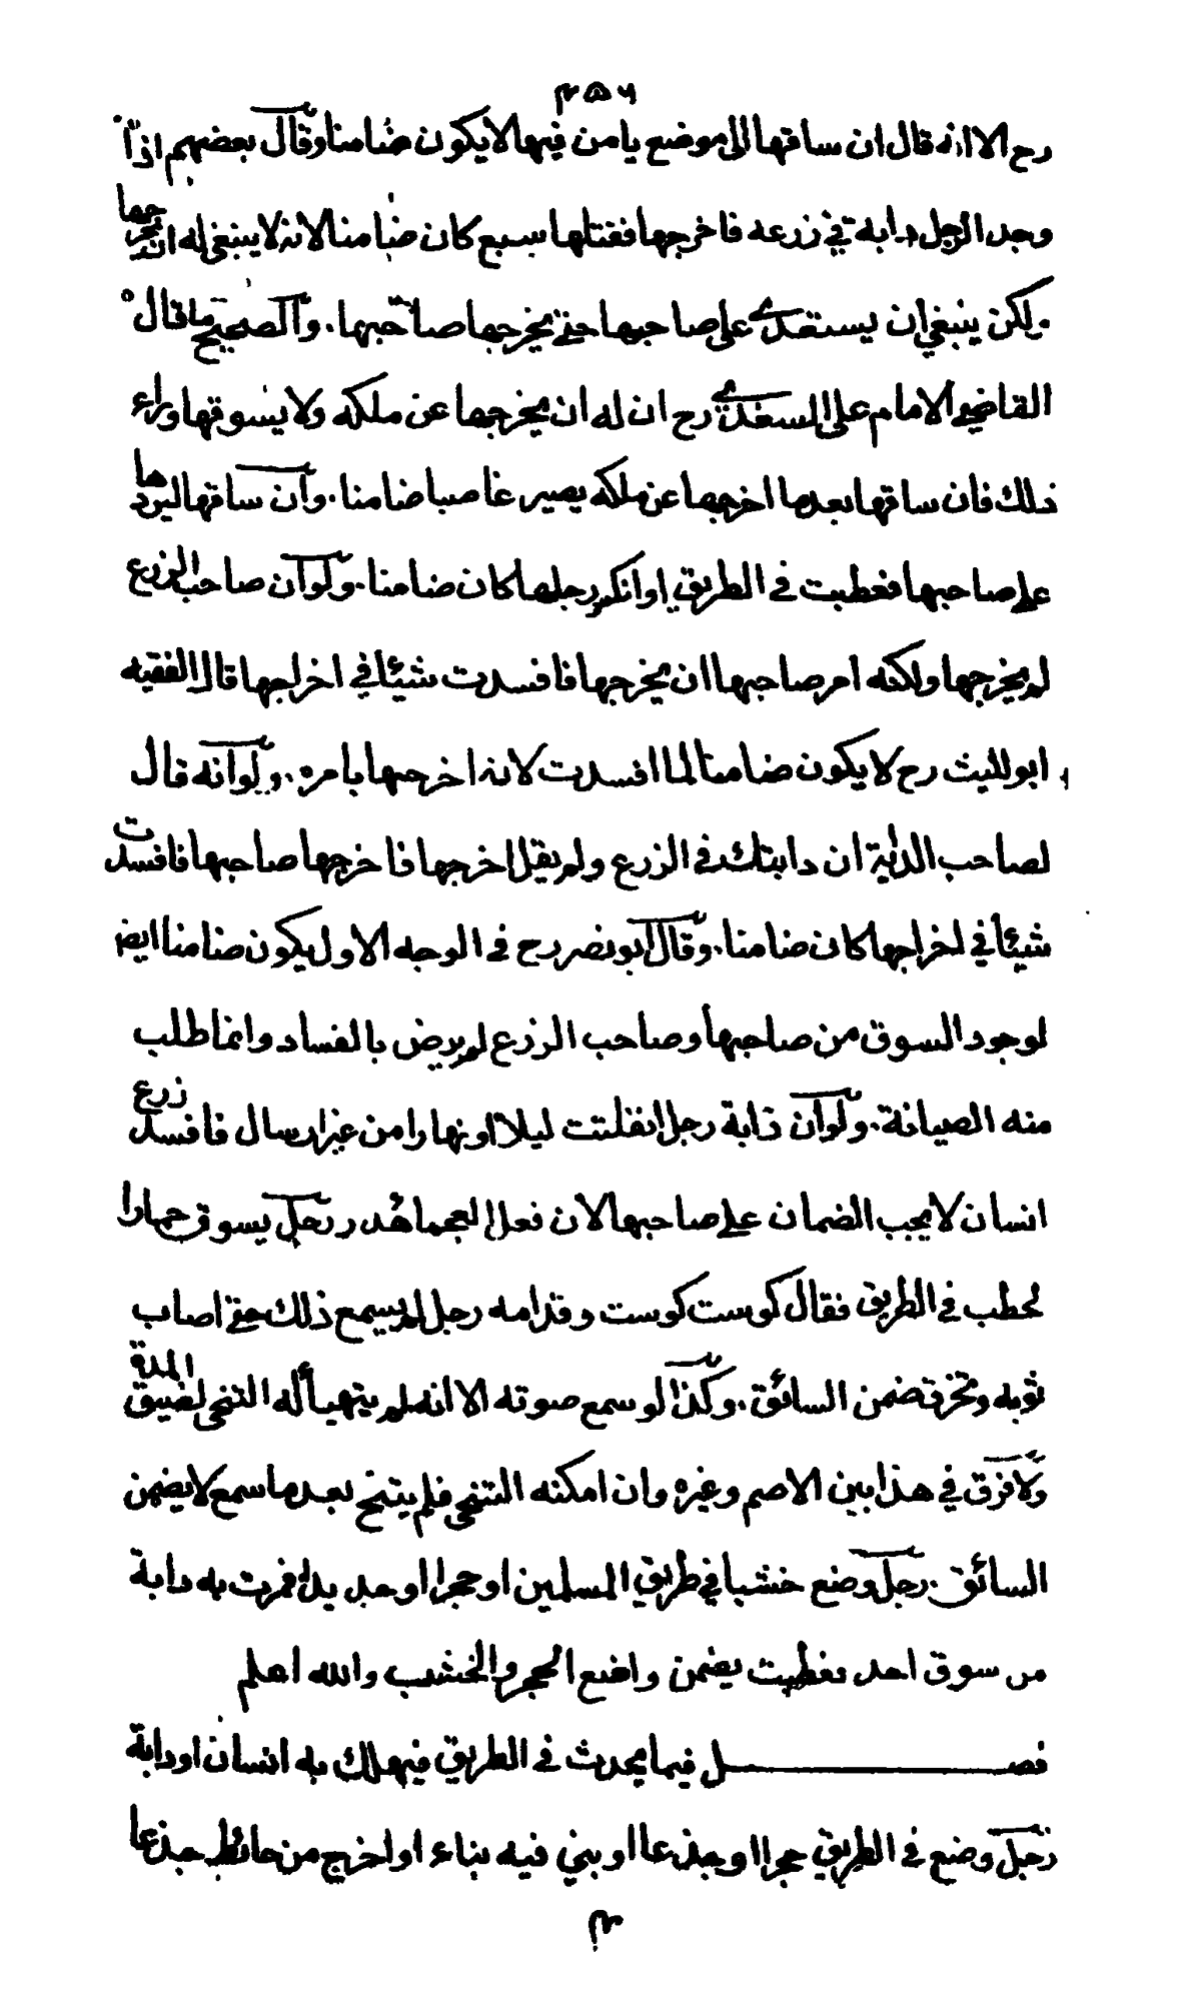 ٤٥٦
رح الا انه قال ان ساقها الى موضع يامن فيها لا يكون ضامنا وقال بعضهم اذا
وجد الرجل دابة في زرعه فاخرجها فقتلها سبع كان ضامنا لانه لا ينبغى له ان يخرجها
ولكن ينبغي ان يستعدي على صاحبها حتى يخرجها صاحبها. والصحيح ما قاله
القاضي الامام علي السغدي رح ان له ان يخرجها عن ملكه ولا يسوقها وراء
ذلك فان ساقها بعد ما اخرجها عن ملكه يصير غاصبا ضامنا. وان ساقها ليردها
على صاحبها فعطبت في الطريق او انكسر رجلها كان ضامنا. ولو ان صاحب الزرع
لم يخرجها ولكنه امر صاحبها ان يخرجها فافسدت شيئا في اخراجها قال الفقيه
ابو الليث رح لا يكون ضامنا لما افسدت لانه اخرجها بامره. ولو انه قال
لصاحب الدابة ان دابتك في الزرع ولم يقل اخرجها فاخرجها صاحبها فافسدت
شيئا في اخراجها كان ضامنا. وقال ابو نصر رح في الوجه الاول يكون ضامنا ايضا
لوجود السوق من صاحبها وصاحب الزرع لم يرض بالفساد وانما طلب
منه الصيانة. ولو ان دابة رجل انفلتت ليلا او نهارا من غير ارسال فافسدت زرع
انسان لا يجب الضمان على صاحبها لان فعل العجماء هدر رجل يسوق حمارا
لحطب في الطريق فقال كوست كوست وقدامه رجل لم يسمع ذلك حتى اصاب
ثوبه وتخرق ضمن السائق. وكذا لو سمع صوته الا انه لم يتهيأ له التنحى لضيق المدة
ولا فرق في هذا بين الاصم وغيره وان امكنه التنحى فلم يتنح بعد ما سمع لا يضمن
السائق. رجل وضع خشبا في طريق المسلمين او حجرا او حديدا فمرت به دابة
من سوق احد فعطبت يضمن واضع الحجر والخشب والله اعلم
فصل فيما يحدث في الطريق فيهلك به انسان او دابة
رجل وضع في الطريق حجرا او جذعا او بنى فيه بناء او اخرج من حائط جذعا